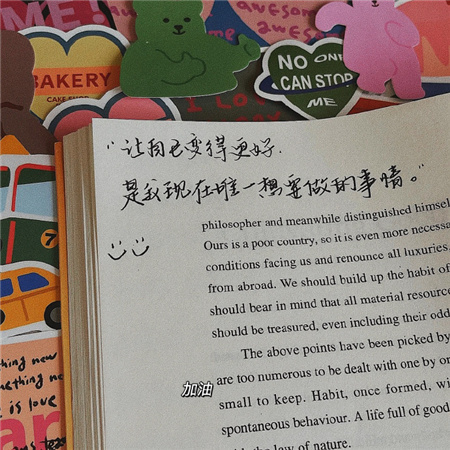 awesome
BAKERY
CAKE SHOP
NO ONE
CAN STOP
ME
I LOVE
"让自己变得更好,
是我现在唯一想要做的事情。"
philosopher and meanwhile distinguished himsel
Ours is a poor country, so it is even more necessa
conditions facing us and renounce all luxuries,
from abroad. We should build up the habit of
should bear in mind that all material resource
should be treasured, even including their odd
The above points have been picked by
are too numerous to be dealt with one by on
small to keep. Habit, once formed, wi
spontaneous behaviour. A life full of good
with the law of nature.
加油
7
thing new
mething new
e is love